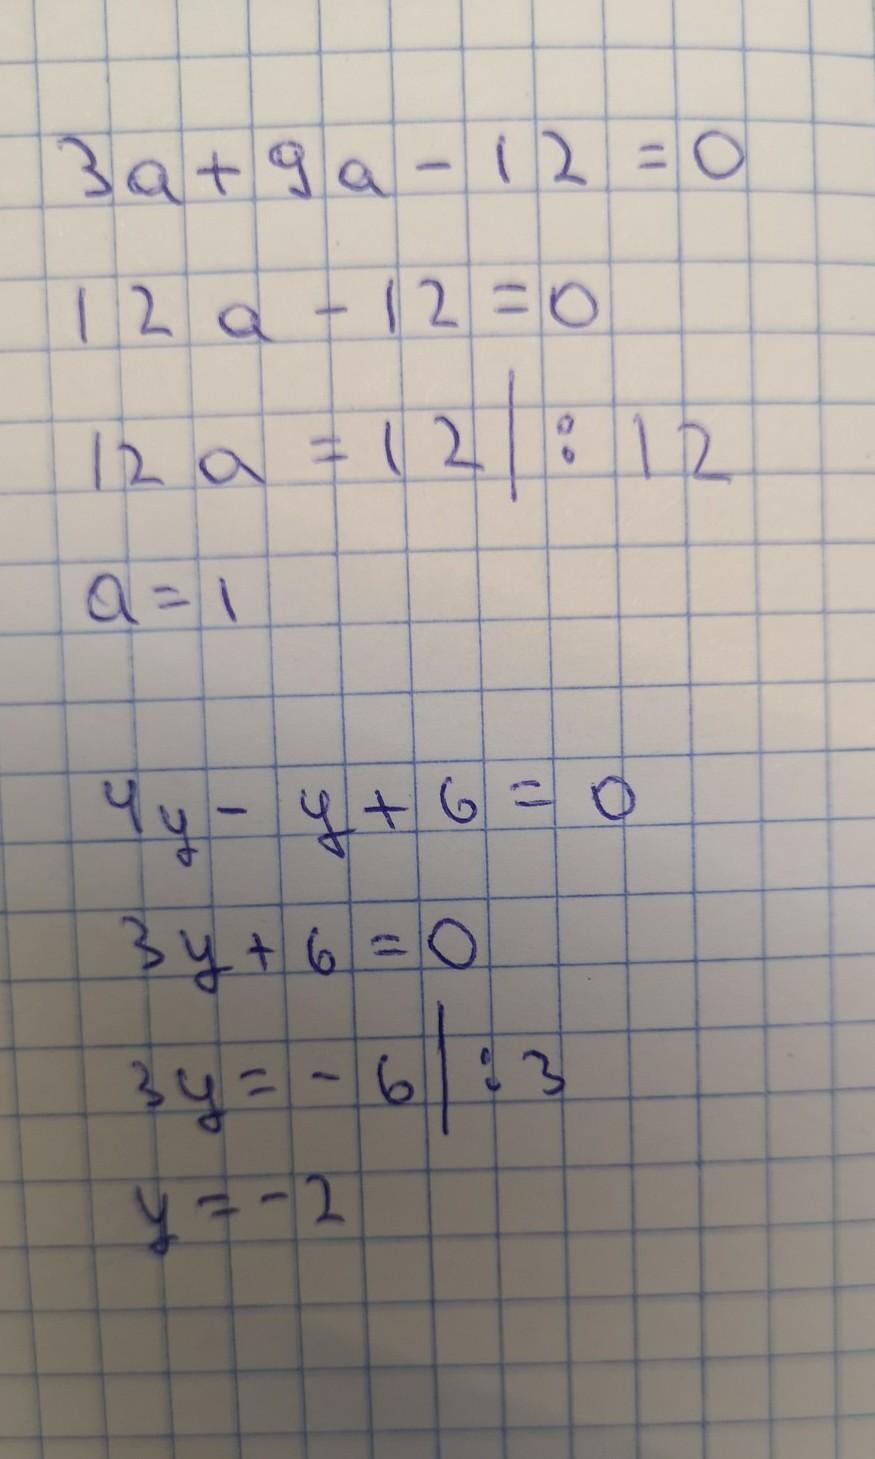 3a + 9a - 12 = 0
12a - 12 = 0
12a = 12 | : 12
a = 1
4y - y + 6 = 0
3y + 6 = 0
3y = - 6 | : 3
y = -2